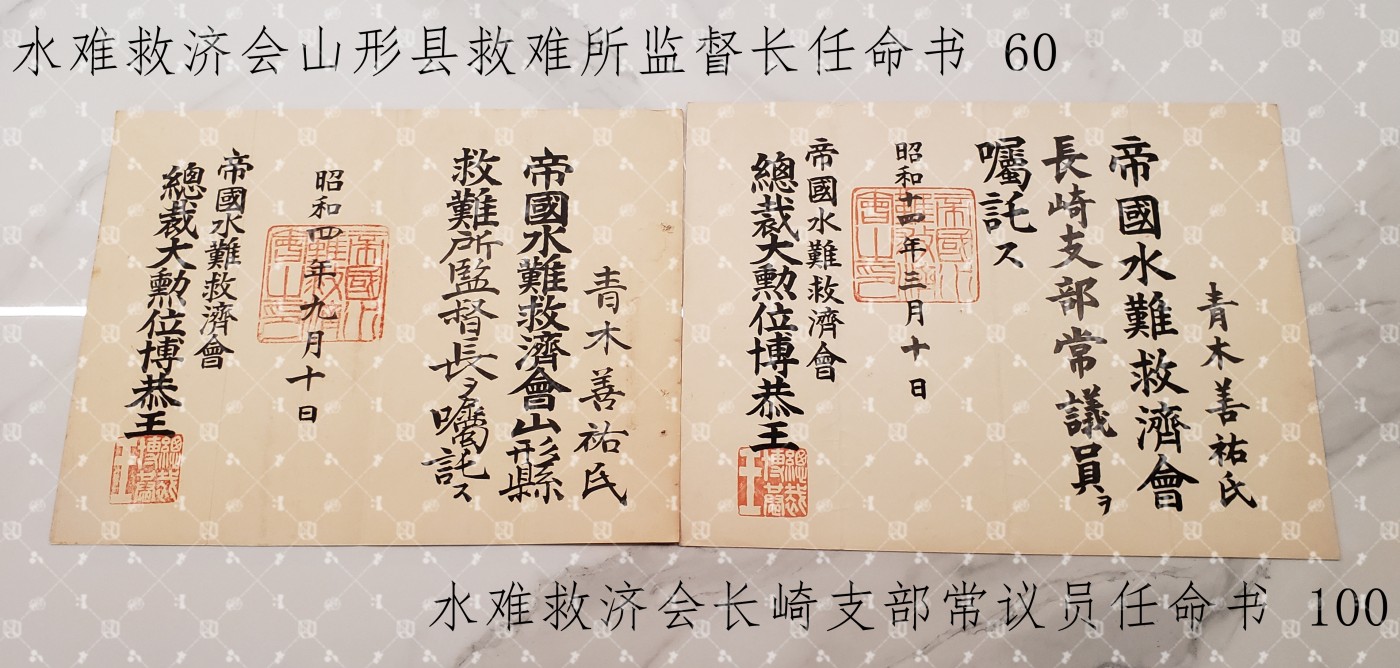 水难救济会山形县救难所监督长任命书 60
青木善祐氏
帝國水難救濟會山形縣
救難所監督長ヲ囑託ス
昭和四年九月十日
帝國水難救濟會
總裁大勲位博恭王
總裁博恭王
青木善祐氏
帝國水難救濟會
長崎支部常議員ヲ
囑託ス
昭和十四年三月十日
帝國水難救濟會
總裁大勲位博恭王
總裁博恭王
水难救济会长崎支部常议员任命书 100